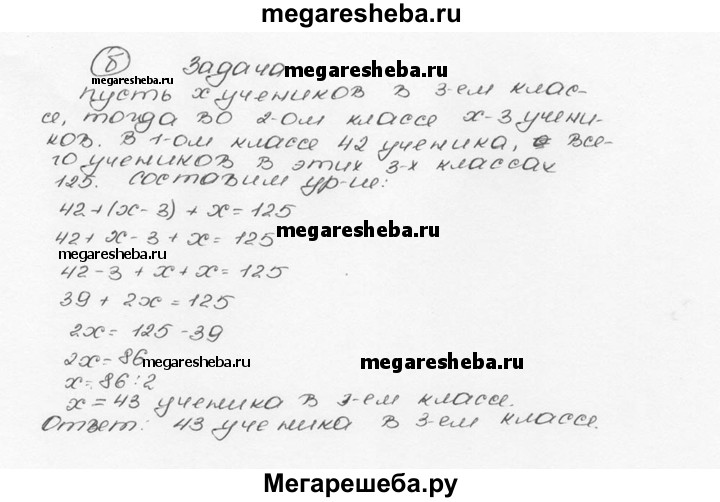 megaresheba.ru
б) Задача
megaresheba.ru
megaresheba.ru
Пусть x учеников в 3-ем клас-
се, тогда во 2-ом классе x-3 учени-
ков. В 1-ом классе 42 ученика, все-
го учеников в этих 3-х классах
125. Составим ур-ие:
42+(x-3)+x=125
42+x-3+x=125
megaresheba.ru
megaresheba.ru
42-3+x+x=125
39+2x=125
2x=125-39
2x=86
megaresheba.ru
megaresheba.ru
x=86:2
x=43 ученика в 3-ем классе.
Ответ: 43 ученика в 3-ем классе.
Мегарешеба.ру